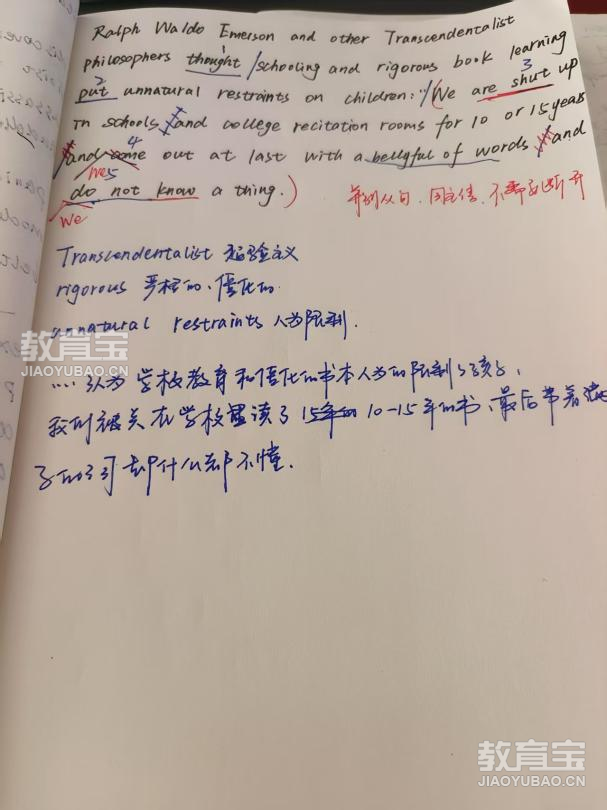 Ralph Waldo Emerson and other Transcendentalist
philosophers thought / schooling and rigorous book learning
1
2
3
put unnatural restraints on children: "/(We are shut up
in schools, and college recitation rooms for 10 or 15 years
4
and come out at last with a bellyful of words, and
we 5
do not know a thing.)
并列从句、因主语、不需要断开
We
Transcendentalist 超验主义
rigorous 严格的、僵化的
unnatural restraints 人为限制.
.... 认为学校教育和僵化的书本人为的限制了孩子,
我们被关在学校里读了 10-15年的书、最后带着
子的词却什么都不懂.
教育宝
JIAOYUBAO.CN
教育宝
JIAOYUBAO.CN